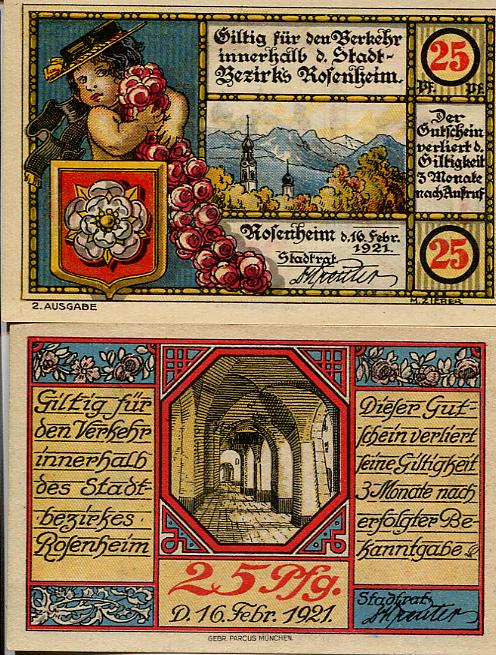 Giltig für den Verkehr
innerhalb d. Stadt-
Bezirks Rosenheim.
25
Pf. Pf.
Der
Gutschein
verliert d.
Giltigkeit
3 Monate
nach Aufruf
Rosenheim d. 16. Febr.
1921.
Stadtrat
25
2. AUSGABE
M. ZIEBER
Giltig für
den Verkehr
innerhalb
des Stadt-
bezirkes
Rosenheim
Dieser Gut-
schein verliert
seine Giltigkeit
3 Monate nach
erfolgter Be-
kanntgabe
25 Pfg.
D. 16. Febr. 1921.
Stadtrat
GEBR. PARCUS MÜNCHEN.